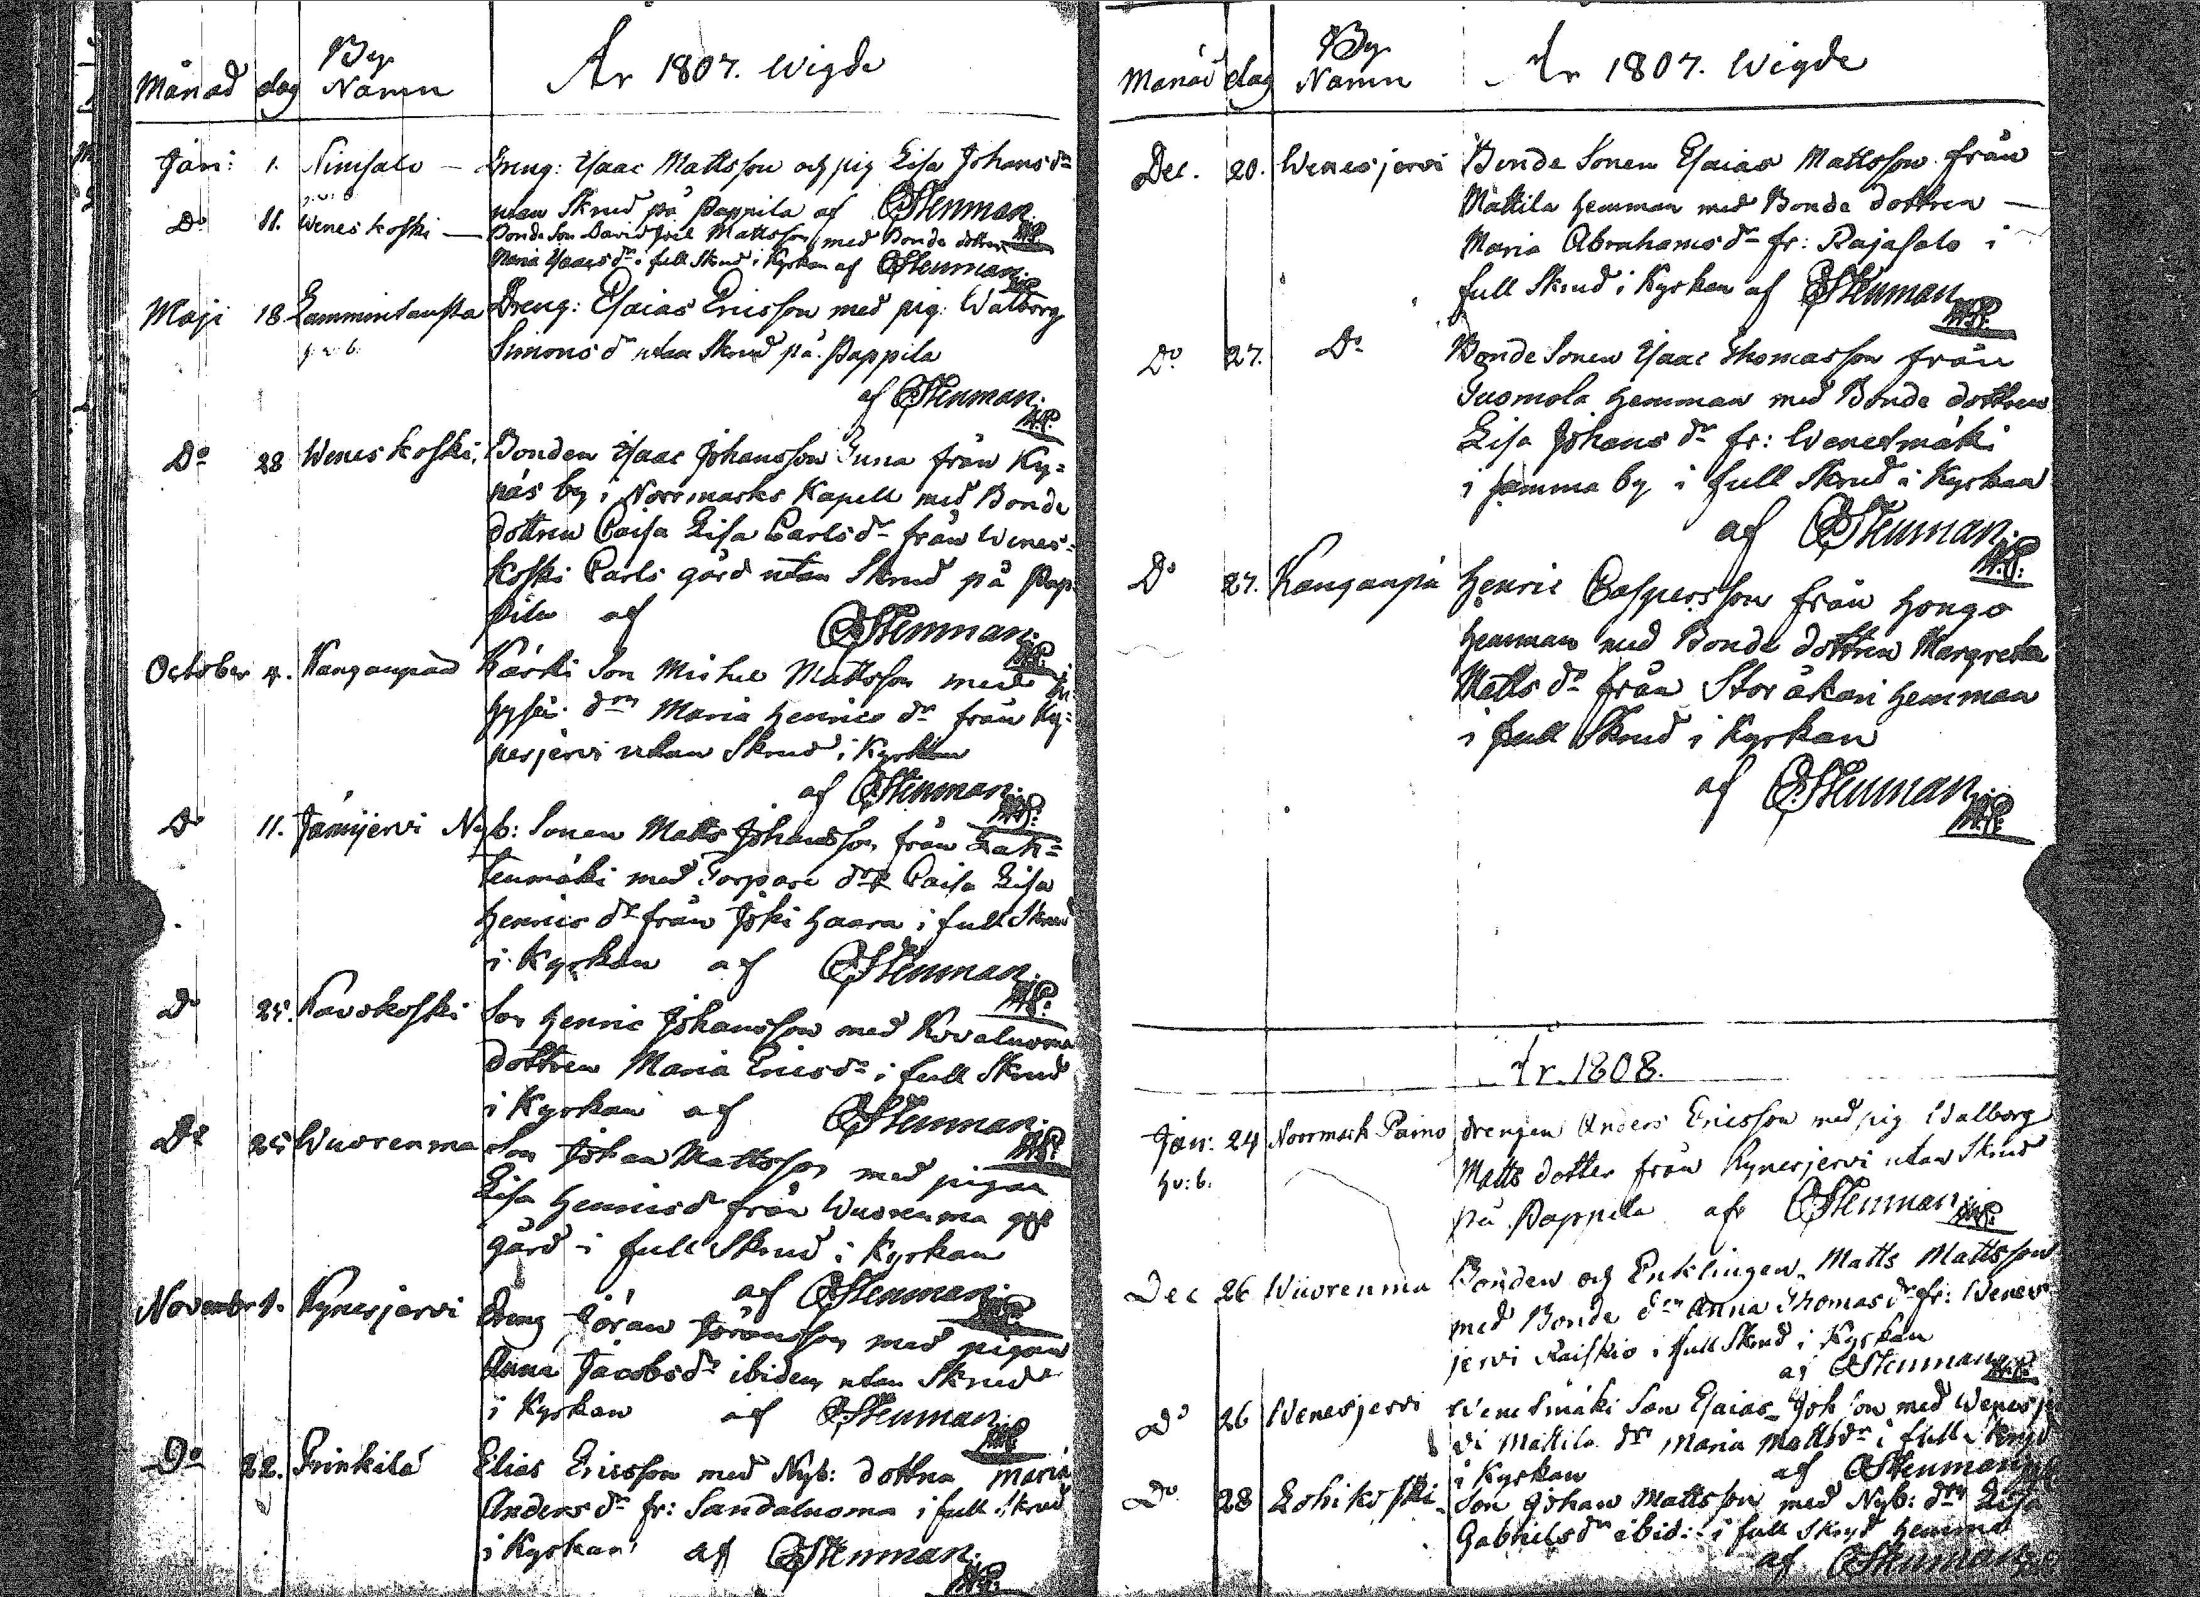 Månad dag By Namn År 1807. Wigde
Jan: 1. Niinsalo — Dreng: Isaac Mattsson och pig Lisa Johans dr
utan Skrud på Pappila af CStenman. M.P.
Do 11. Weneskoski — Bonde Son David Joel Mattsson med Bonde dottren
Maria Isaacs dr i full Skrud i Kyrkan af CStenman. M.P.
Maji 18 Lammintausta Dreng: Esaias Ericsson med pig: Walborg
h. v. b. Simons dr utan Skrud på Pappila
af CStenman. M.P.
Do 28 Weneskoski. Bonden Isaac Johansson Juna från Ky=
näs by i Norrmarks Kapell med Bonde
dottren Caisa Lisa Carls dr från Wenes=
koski Carls gård utan Skrud på Pap=
pila af CStenman. M.P.
October 4. Kanganpää Kärki Son Michel Mattsson med
hysi: drn Maria Henrics dr från Ky=
nesjervi utan Skrud i Kyrkan
af CStenman. M.P.
Do 11. Jämijervi Nyb: Sonen Matts Johansson från Lah=
tenmäki med Torpare dr Caisa Lisa
Henrics dr från Jski Haara i full Skrud
i Kyrkan af CStenman. M.P.
Do 25. Kavokoski Son Henric Johansson med Kovaluoma
dottren Maria Erics dr i full Skrud
i Kyrkan af CStenman. M.P.
Do 25 Wuorenma Son Johan Mattsson med pigan
Lisa Henricsd från Wuorenma
gård i full Skrud i Kyrkan
af CStenman. M.P.
November 1. Kynesjervi Dreng Jöran Jöransson med pigan
Anna Jacobs dr ibidem utan Skrud
i Kyrkan af CStenman. M.P.
Do 22. Prinkilä Elias Ericsson med Nyb: dottna Maria
Anders dr fr: Sandaluoma i full Skrud
i Kyrkan af CStenman. M.P.
Månad dag By Namn År 1807. Wigde
Dec. 20. Wenesjervi Bonde Sonen Esaias Mattsson från
Mattila Hemman med Bonde dottren —
Maria Abrahams dr fr: Rajasalo i
full Skrud i Kyrkan af CStenman M.P.
Do 27. Do Bonde Sonen Isaac Thomasson från
Tuomola Hemman med Bonde dottren
Lisa Johans dr fr: Wenesmäki
i samma by i full Skrud i Kyrkan
af CStenman. M.P.
Do 27. Kanganpä Henric Caspersson från Hongo
Hemman med Bonde dottren Margreta
Matts dr från Stor äkäri Hemman
i full Skrud i Kyrkan
af CStenman. M.P.
År 1808.
Jan: 24 Norrmark Paino drengen Anders Ericsson med pig Walborg
hv: b. Matts dotter från Kynesjervi utan Skrud
på Pappila af CStenman M.P.
Dec 26 Wuorenma Bonden och Enklingen Matts Mattsson
med Bonde drn Anna Thomas dr fr: Wenes
jervi Raiskio i full Skrud i Kyrkan
af CStenman M.P.
Do 26 Wenesjervi Wenesmäki Son Esaias Joh son med Wenesjer
vi Mattila drn Maria Matts dr i full Skryd
i Kyrkan af CStenman M.P.
Do 28 Lohikoski Son Johan Mattsson med Nyb: drn Lisa
Gabriels dr ibid: i full Skryd Hemma
af CStenman